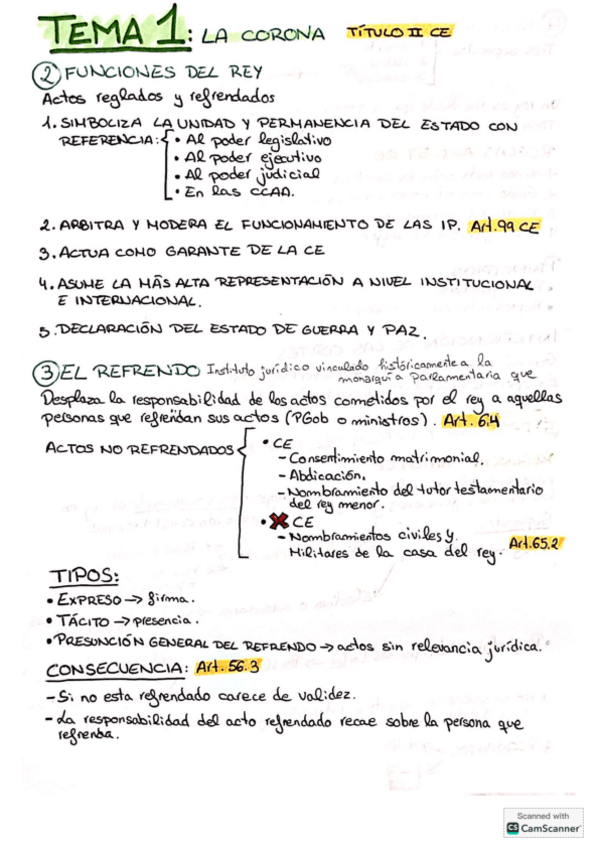 TEMA 1: LA CORONA TÍTULO II CE
2 FUNCIONES DEL REY
Actos reglados y refrendados
1. SIMBOLIZA LA UNIDAD Y PERMANENCIA DEL ESTADO CON
REFERENCIA: { • Al poder legislativo
• Al poder ejecutivo
• Al poder judicial
• En las CCAA.
2. ARBITRA Y MODERA EL FUNCIONAMIENTO DE LAS IP. Art.99 CE
3. ACTUA COMO GARANTE DE LA CE
4. ASUME LA MÁS ALTA REPRESENTACIÓN A NIVEL INSTITUCIONAL
E INTERNACIONAL.
5. DECLARACIÓN DEL ESTADO DE GUERRA Y PAZ.
3 EL REFRENDO Instituto jurídico vinculado históricamente a la
monarquía Parlamentaria que
Desplaza la responsabilidad de los actos cometidos por el rey a aquellas
personas que refrendan sus actos (PGob o ministros). Art. 64
ACTOS NO REFRENDADOS { • CE
- Consentimiento matrimonial.
- Abdicación.
- Nombramiento del tutor testamentario
del rey menor.
• ❌ CE
- Nombramientos civiles y.
Militares de la casa del rey. Art.65.2
TIPOS:
• EXPRESO → firma.
• TÁCITO → presencia.
• PRESUNCIÓN GENERAL DEL REFRENDO → actos sin relevancia jurídica.
CONSECUENCIA: Art. 56.3
- Si no esta refrendado carece de validez.
- La responsabilidad del acto refrendado recae sobre la persona que
refrenda.
Scanned with
CS CamScanner